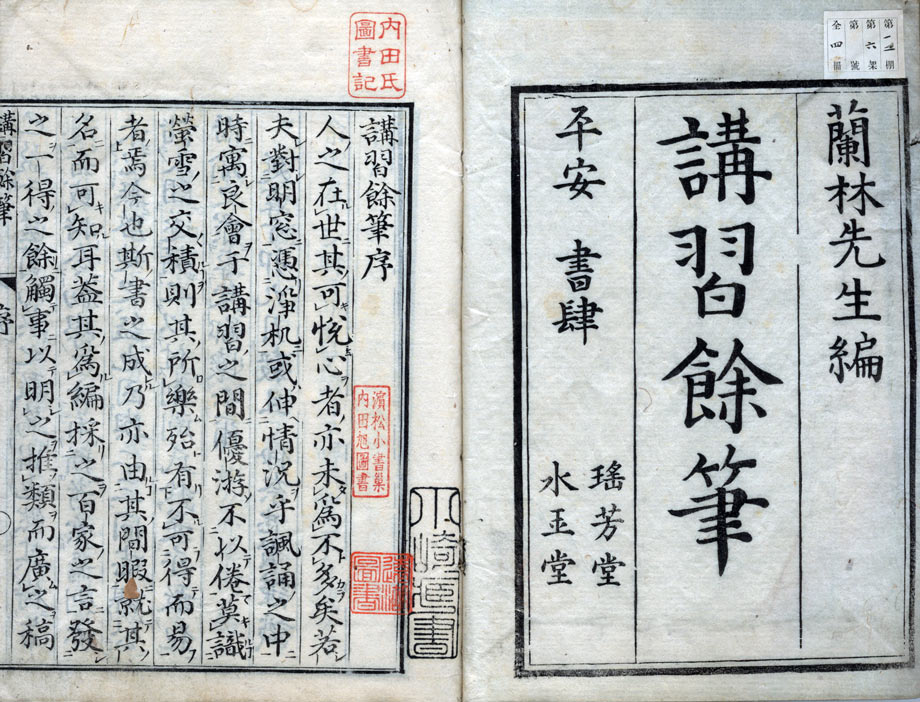 第六架
第號
全四冊
蘭林先生編
講習餘筆
平安 書肆
瑤芳堂
水玉堂
内田氏
圖書記
講習餘筆序
人之在世其可悅心者亦未為不多矣若
夫對明窓憑淨机或伸情況乎諷誦之中
時寓良會于講習之間優游不以倦莫識
螢雪之交積則其所樂殆有不可得而易
者焉今也斯書之成乃亦由其間暇就其
名而可知耳葢其為編採之百家之言發
之一得之餘觸事以明之推類而廣之稿
濱松小書巢
内田旭圖書
圖書
講習餘筆
序